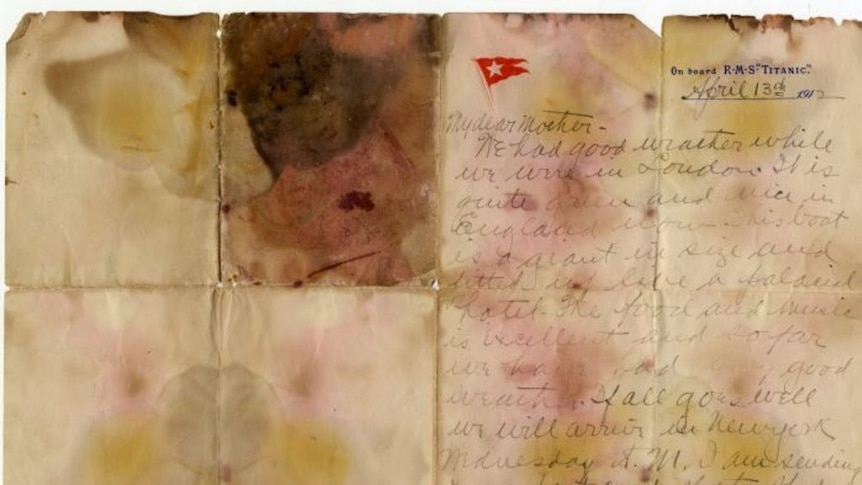 On board R·M·S "TITANIC".
April 13th 1912
My dear Mother-
We had good weather while
we were in London. It is
quite green and nice in
England now. This boat
is a giant in size and
fitted up like a palacial
hotel. The food and music
is excellent and so far
we have had very good
weather. If all goes well
we will arrive in New york
Wednesday A. M. I am sending